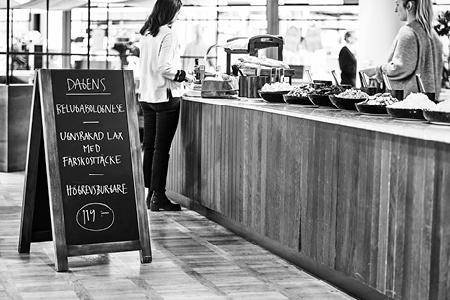 DAGENS
BELUGABOLOGNESE
UGNSBAKAD LAX
MED
FÄRSKOSTTÄCKE
HÖGREVSBURGARE
119:-